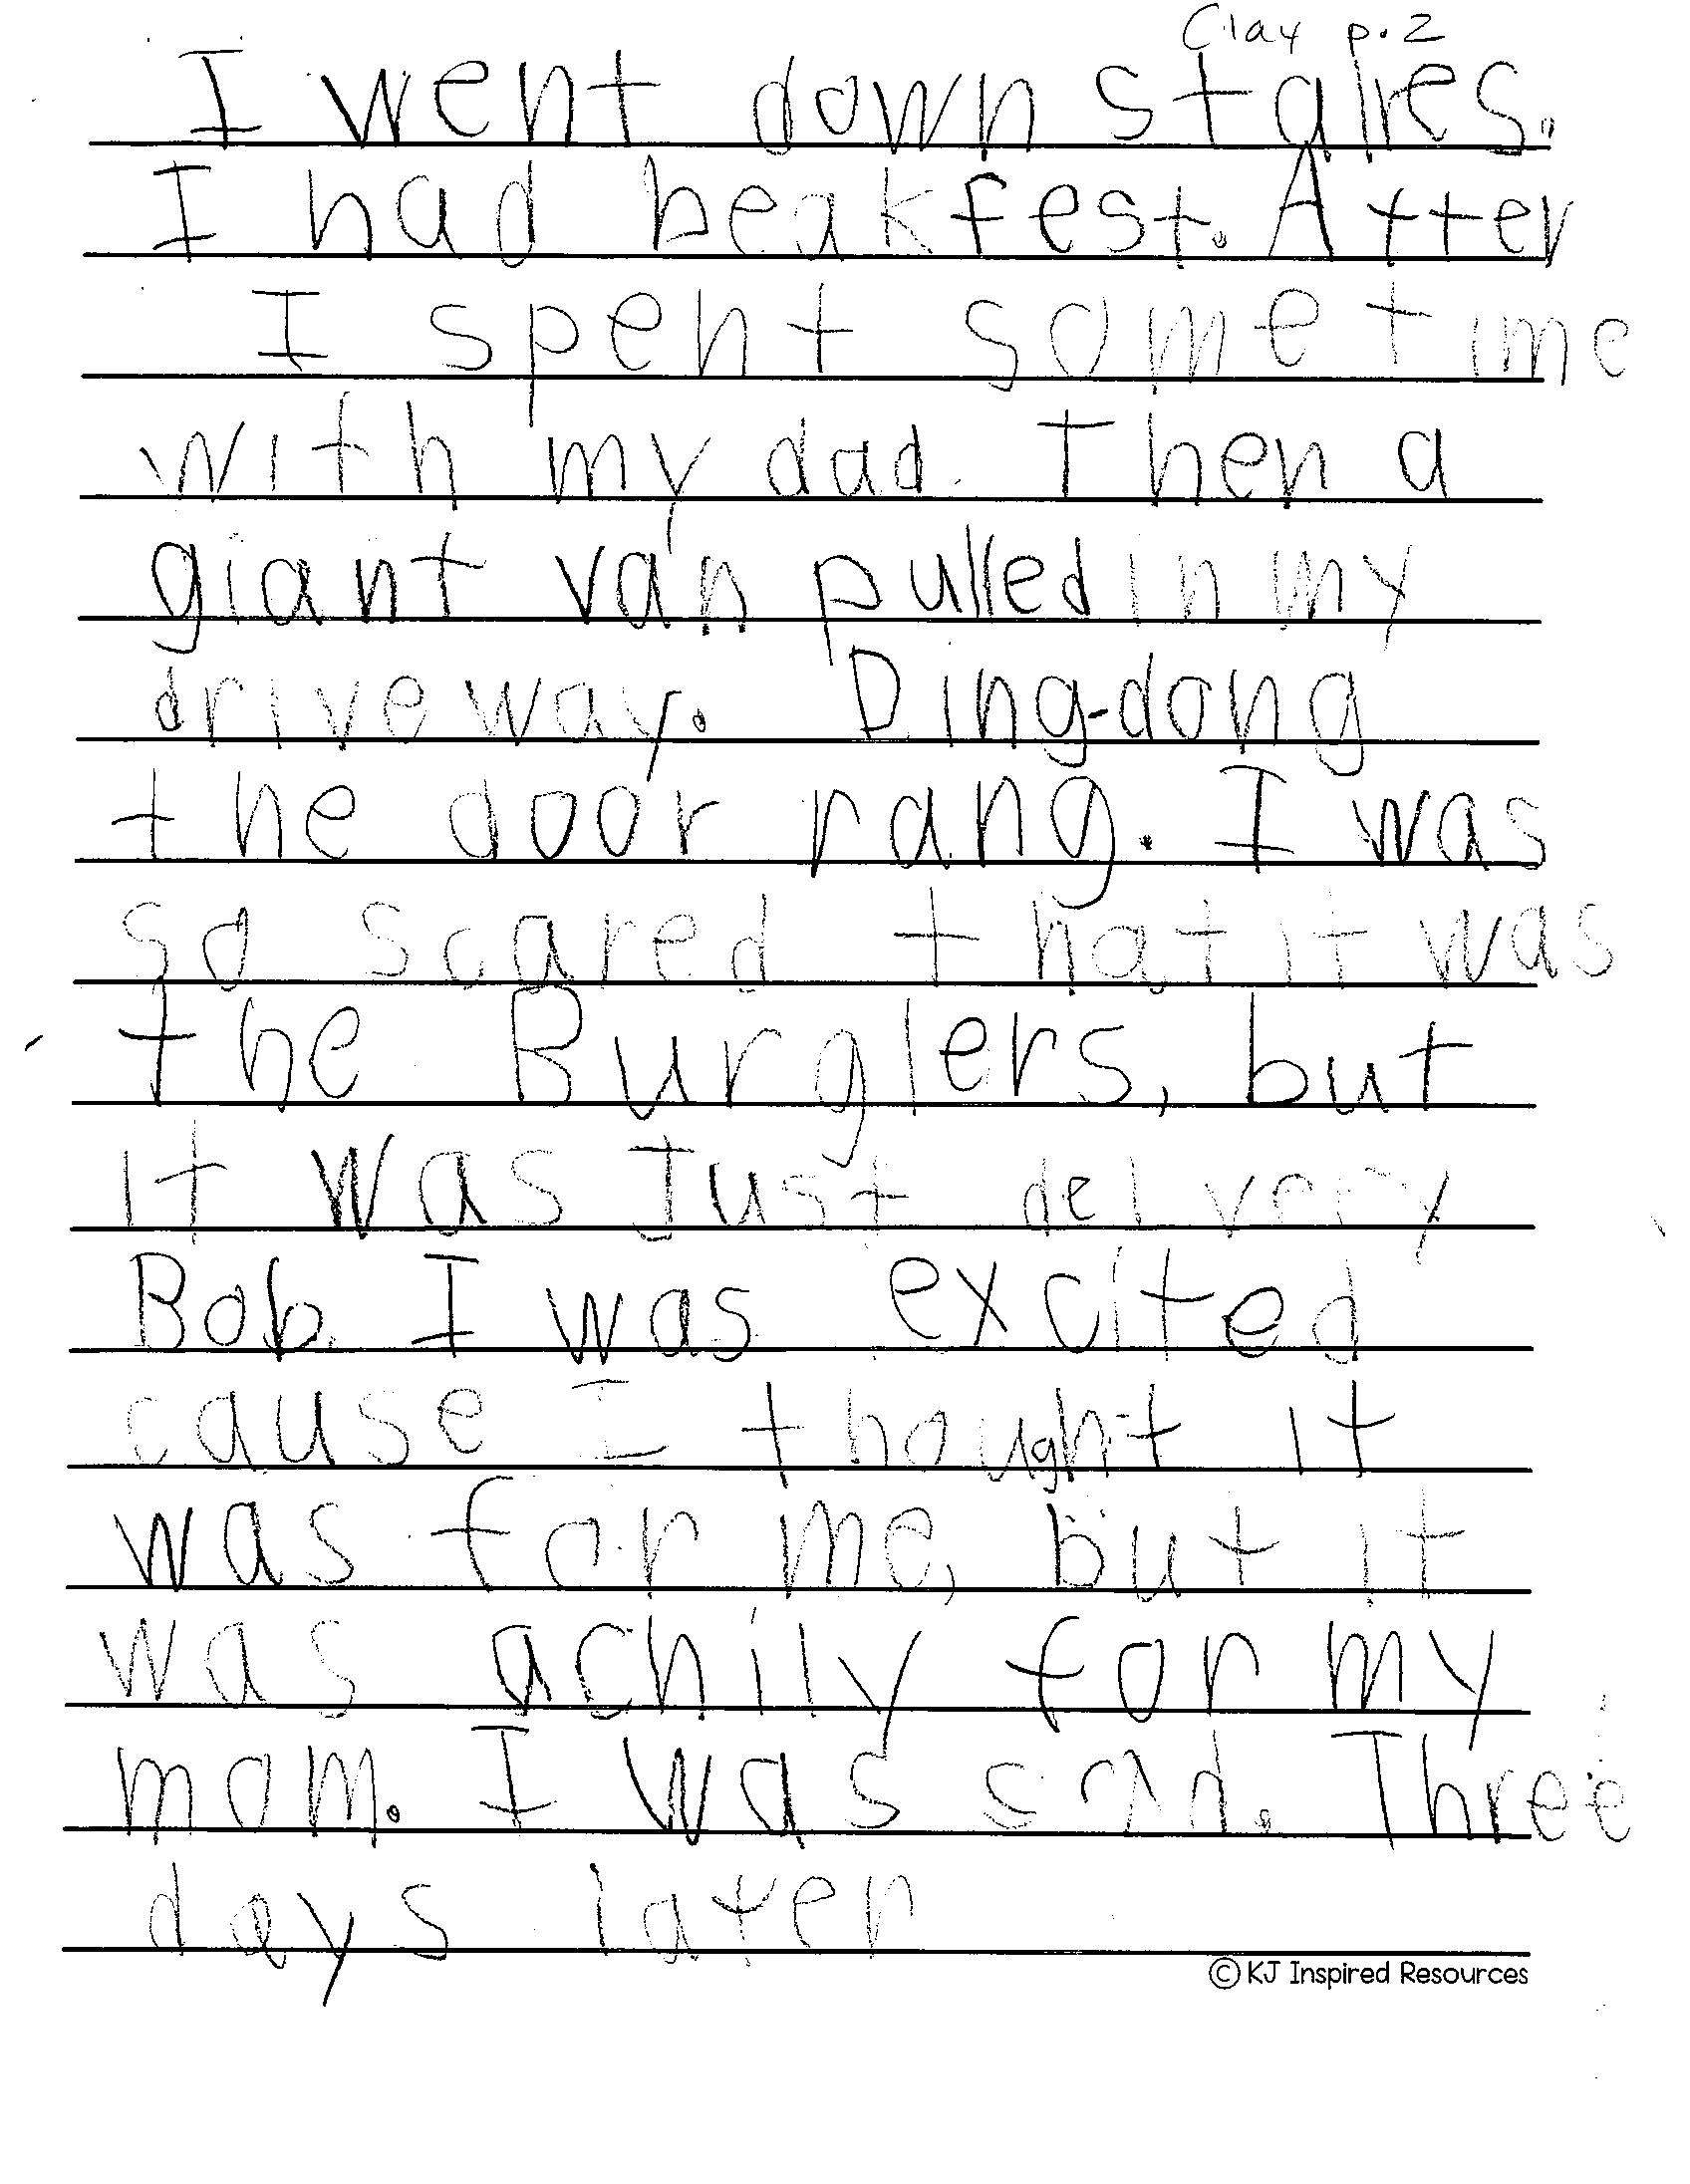 Clay p. 2
I went down staires.
I had beakfest. After
I spent some time
with my dad. Then a
giant van pulled in my
driveway. Ding-dong
the door rang. I was
so scared that it was
the Burglers, but
it was Just delvery
Bob. I was excited
cause I thought it
was for me, but it
was achily for my
mom. I was sad. Three
days later
© KJ Inspired Resources